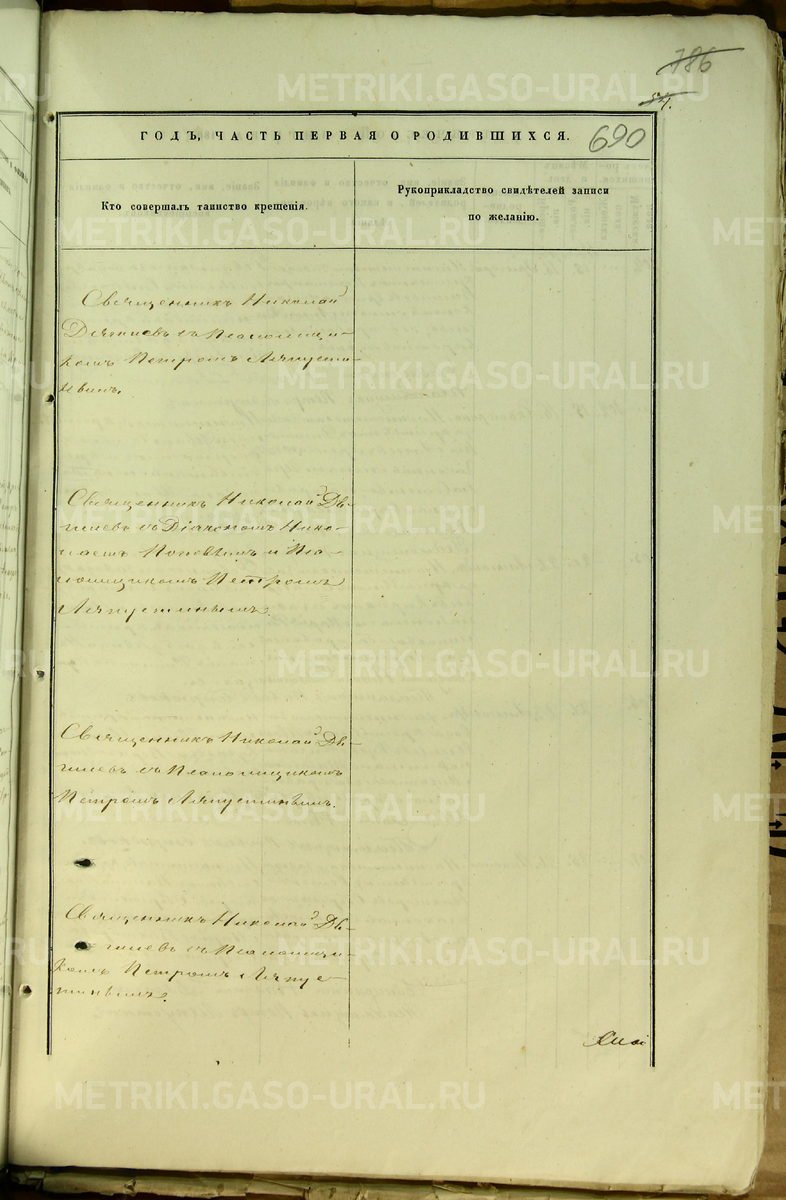 786
54.
690
ГОДЪ, ЧАСТЬ ПЕРВАЯ О РОДИВШИХСЯ.
Кто совершалъ таинство крещенія.
Рукоприкладство свидѣтелей записи
по желанію.
Священникъ Николай
съ Псаломщи-
комъ Петромъ Ляпусти-
Священникъ Николай Дя-
гилевъ съ Діакономъ Нико-
лаемъ Поповымъ и Пса-
ломщикомъ Петромъ
Ляпустинымъ.
Священникъ Николай Дя-
гилевъ съ Псаломщикомъ
Петромъ Ляпустинымъ.
Священникъ Николай Дя-
гилевъ съ Псаломщи-
комъ Петромъ Ляпус-
тинымъ.
METRIKI.GASO-URAL.RU